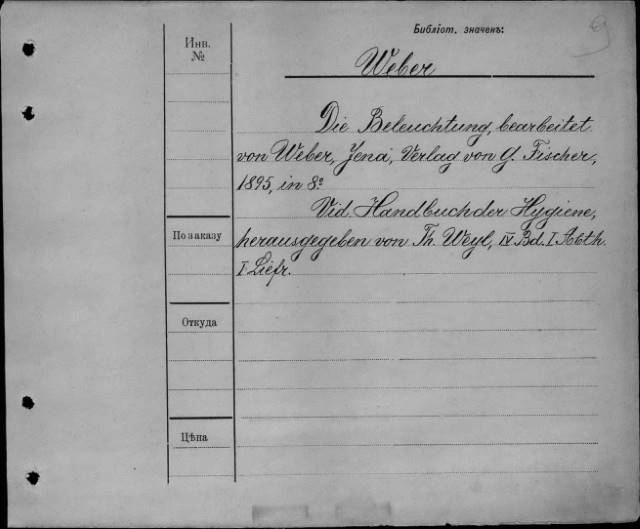 Библіот. значенъ:
9
Инв.
№
Weber
Die Beleuchtung, bearbeitet
von Weber, Jena, Verlag von G. Fischer,
1895, in 8º
Vid. Handbuch der Hygiene,
По заказу
herausgegeben von Th. Weyl, IV Bd. I Abth.
I Liefr.
Откуда
Цѣна